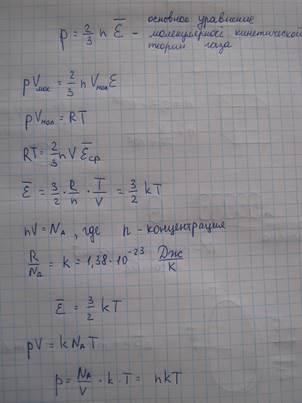 p = 2/3 n Ē - основное уравнение
молекулярно кинетической
теории газа
pVмол = 2/3 n Vмол Ē
pVмол = RT
RT = 2/3 nV Ēср
Ē = 3/2 · R/n · T/V = 3/2 kT
nV = NA, где n - концентрация
R/NA = k = 1,38 · 10⁻²³ Дж/К
Ē = 3/2 kT
pV = k NA T
p = NA/V · k · T = nkT